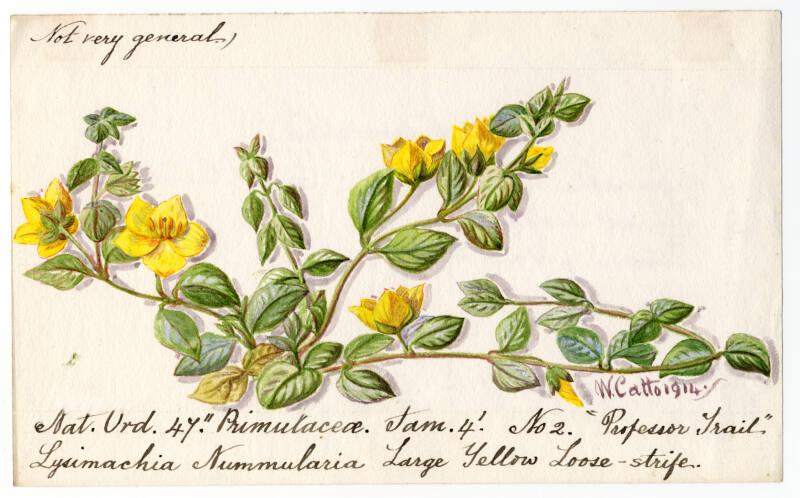 Not very general,)
W. Catto 1914.
Nat. Ord. 47." Primulaceæ. Fam. 4'. No 2. "Professor Trail"
Lysimachia Nummularia Large Yellow Loose-strife.